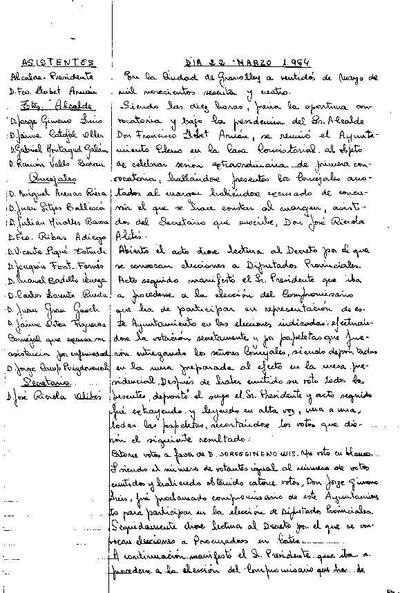 ASISTENTES
Alcalde-Presidente
D. Fco. Llobet Arnán
Ttes. Alcalde
D. Jorge Gimeno Luis
D. Jaime
D. Gabriel
D. Ramón Valls
Concejales
D. Miguel Arenas Riera
D. Juan Sitjes
D. Julian Miralles
D. Fco. Ribas Adiego
D. Vicente
D. Joaquin Font
D. Manuel
D. Carlos
D. Juan Grau
D. Jaime
Concejal que excusa su
asistencia por enfermedad
D. Jorge
Secretario
D. José
DIA 22 MARZO 1.964
En la Ciudad de Granollers a veintidós de Marzo de
mil novecientos sesenta y cuatro.
Siendo las diez horas, previa la oportuna con-
vocatoria y bajo la presidencia del Sr. Alcalde
Don Francisco Llobet Arnán, se reunió el Ayunta-
miento Pleno en la Casa Consistorial al objeto
de celebrar sesión extraordinaria de primera con-
vocatoria, hallándose presentes los Concejales ano-
tados al margen habiéndose excusado de concu-
rrir el que se hace constar al margen, asisti-
dos del Secretario que suscribe, Don José
Abierto el acto dióse lectura al Decreto por el que
se convocan elecciones a Diputados Provinciales.
Acto seguido manifestó el Sr. Presidente que iba
a procederse a la elección del Compromisario
que ha de participar en representación de es-
te Ayuntamiento en las elecciones indicadas, efectuán-
dose la votación secretamente y por papeletas que fue-
ron entregando los señores Concejales, siendo depositados
en la urna preparada al efecto en la mesa pre-
sidencial. Después de haber emitido su voto todos los
presentes, depositó el suyo el Sr. Presidente y acto seguido
fué extrayendo y leyendo en alta voz, una a una,
todas las papeletas, recontándose los votos que die-
ron el siguiente resultado:
Catorce votos a favor de D. JORGE GIMENO LUIS. Un voto en blanco.
Siendo el número de votantes igual al número de votos
emitidos y habiendo obtenido catorce votos, Don Jorge Gimeno
Luis, fué proclamado compromisario de este Ayuntamiento
para participar en la elección de Diputados Provinciales.
Seguidamente dióse lectura al Decreto por el que se con-
vocan elecciones a Procuradores en Cortes.
A continuación manifestó el Sr. Presidente que iba a
procederse a la elección del Compromisario que ha de